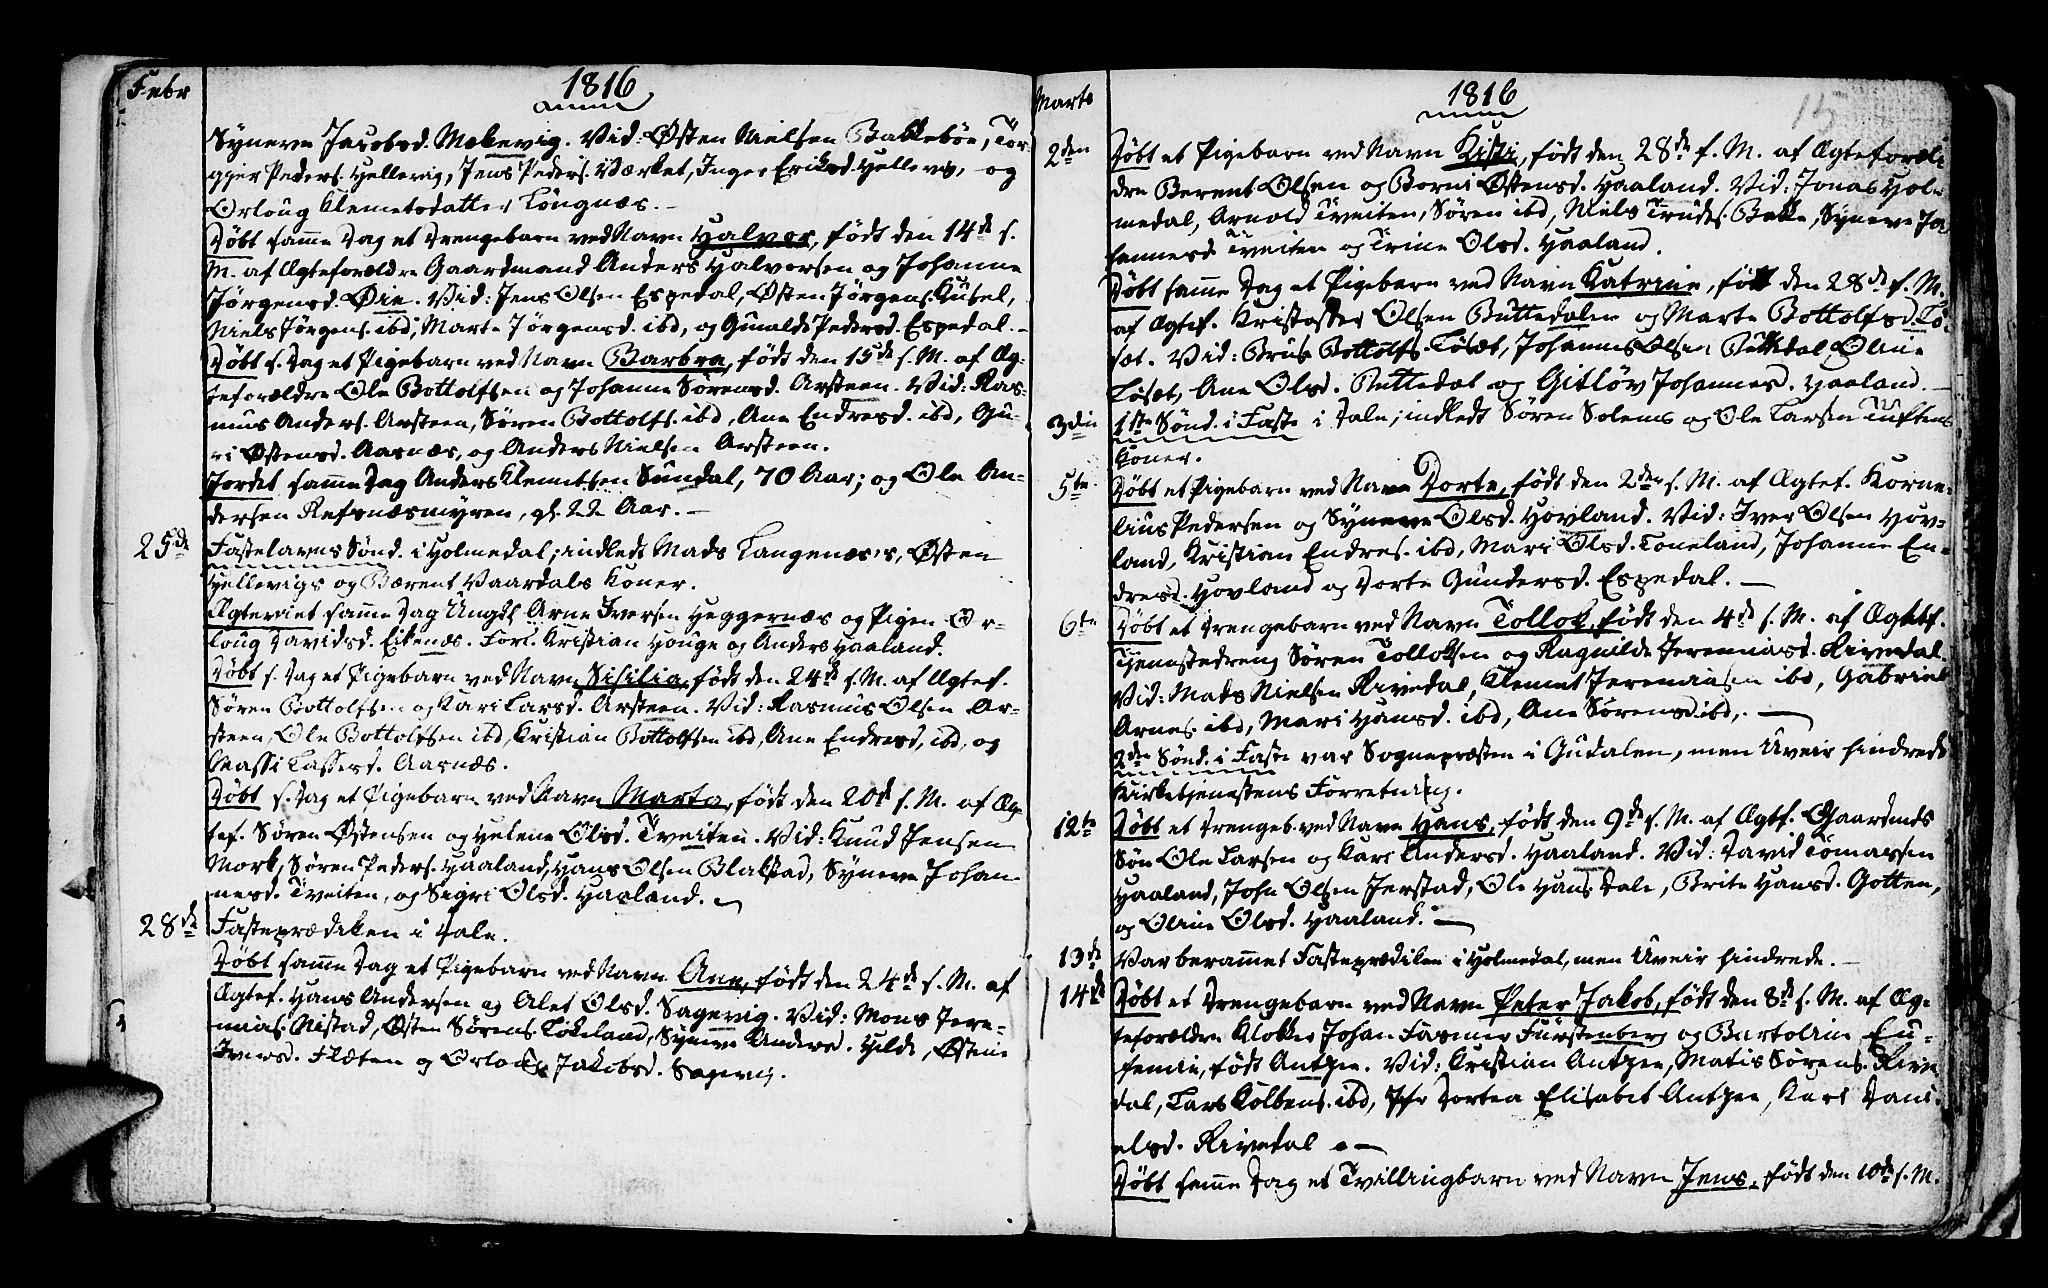 Febr
1816
Syneve Jacobsd. Mækevig. Vid: Østen Nielsen Bakkebøe, Tor-
gjer Peders. Hellevig, Jens Peders. Værket, Inger Eriksd. Hellevig, og
Ørloug Klemetsdatter Longnæs.
Døbt samme Dag et Drengebarn ved Navn Halvor, født den 14de s.
M. af Ægteforældre Gaardmand Anders Halversen og Johanne
Jørgensd. Øie. Vid: Jens Olsen Espedal, Østen Jørgens. Kusel,
Niels Jørgens. ibd, Marte Jørgensd. ibd, og Gunilde Pedersd. Espedal.
Døbt s. Dag et Pigebarn ved Navn Barbra, født den 15de s. M. af Æg-
teforældre Ole Bottolfsen og Johanne Sørensd. Arsteen. Vid: Ras-
mus Anders. Arsteen, Søren Bottolfs. ibd, Ane Endresd. ibd, Gu-
ri Østensd. Aarnæs, og Anders Nielsen Arsteen.
Jordet samme Dag Anders Klemetsen Sundal, 70 Aar; og Ole An-
dersen Refsnæsmyren, gl. 22 Aar.
25de Fastelavns Sønd. i Holmedal; indledt Mads Langenæs's, Østen
Hellevigs og Bærent Vaardals Koner.
Ægteviet samme Dag Ungkl Arne Iversen Heggernæs og Pigen Ør-
loug Davidsd. Eikenæs. Forl. Kristian Houge og Anders Haaland.
Døbt s. Dag et Pigebarn ved Navn Sisilia, født den 24de s. M. af Ægtef.
Søren Bottolfsen og Kari Larsd. Arsteen. Vid: Rasmus Olsen Ar-
steen, Ole Bottolfsen ibd, Kristian Bottolfsen ibd, Ane Endresd, ibd, og
Massi Lassesd. Aarnæs.
Døbt s. Dag et Pigebarn ved Navn Marta, født den 20de s. M. af Æg-
tef. Søren Østensen og Helene Olsd. Tveiten. Vid: Knud Jensen
Mork, Søren Peders. Haaland, Hans Olsen Blakstad, Syneve Johan-
nesd. Tveiten, og Sigri Olsd. Haaland.
28de Fasteprædiken i Dale.
Døbt samme Dag et Pigebarn ved Navn Ane, født den 24de s. M. af
Ægtef. Hans Andersen og Alet Olsd. Sagevig. Vid: Mons Jere-
mias. Nistad, Østen Sørens. Lokeland, Syneve Andersd. Hilde, Østine
Iversd. Flæten og Ørloug Jakobsd. Sagevig.
Marts
1816
15
2den Døbt et Pigebarn ved Navn Kisti, født den 28de f. M. af Ægteforæl-
dre Berent Olsen og Borni Østensd. Haaland. Vid: Jonas Hol-
medal, Arnold Tveiten, Søren ibd, Niels Trudes. Bakke, Syneve Jo-
hannesd Tveiten og Trine Olsd. Haaland.
Døbt samme Dag et Pigebarn ved Navn Katrine, født den 28de f. M.
af Ægtef. Kristoffer Olsen Buttedalen og Marte Bottolfsd. Lo-
sæt. Vid: Bruse Bottolfs. Losæt, Johannes Olsen Buttedal Oline
Losæt, Ane Olsd. Buttedal og Gitløv Johannesd. Haaland.
3die 1ste Sønd. i Faste i Dale; indledt Søren Solems og Ole Larsen Tuftens
Koner.
5te Døbt et Pigebarn ved Navn Dorte, født den 2den s. M. af Ægtef. Korne-
lius Pedersen og Syneve Olsd. Hovland. Vid: Iver Olsen Hov-
land, Kristian Endres. ibd, Mari Olsd. Toneland, Johanne En-
dresd. Hovland og Dorte Gundersd. Espedal.
6te Døbt et Drengebarn ved Navn Tollok, født den 4de s. M. af Ægtef.
Tjenestedreng Søren Tolloksen og Ragnilde Jeremiasd. Rivedal.
Vid: Mads Nielsen Rivedal, Klemet Jeremiasen ibd, Gabriel
Arnes. ibd, Mari Hansd. ibd, Ane Sørensd. ibd,.
2den Sønd. i Faste var Sognepræsten i Gudalen, men Uveir hindrede
Kirketjenestens Forretning.
12te Døbt et Drengeb. ved Navn Hans, født den 9de s. M. af Ægtf. Gaardmds
Søn Ole Larsen og Kari Andersd. Haaland. Vid: David Tomassen
Haaland, John Olsen Jerstad, Ole Hans. Dale, Brite Hansd. Gotten,
og Oline Olsd. Haaland.
13de Var berammet Fasteprædiken i Holmedal, men Uveir hindrede.
14de Døbt et Drengebarn ved Navn Peter Jakob, født den 8de s. M. af Æg-
teforældre Klokker Johan Fasmer Fürstenberg og Bartoline Eu-
femia, født Antzee. Vid: Kristian Antzee, Matis Sørens. Rive-
dal, Lars Kolbens. ibd, Jfr Dortea Elisabet Antzee, Kari Dani-
elsd. Rivedal.
Døbt samme Dag et Tvillingbarn ved Navn Jens, født den 10de s. M.